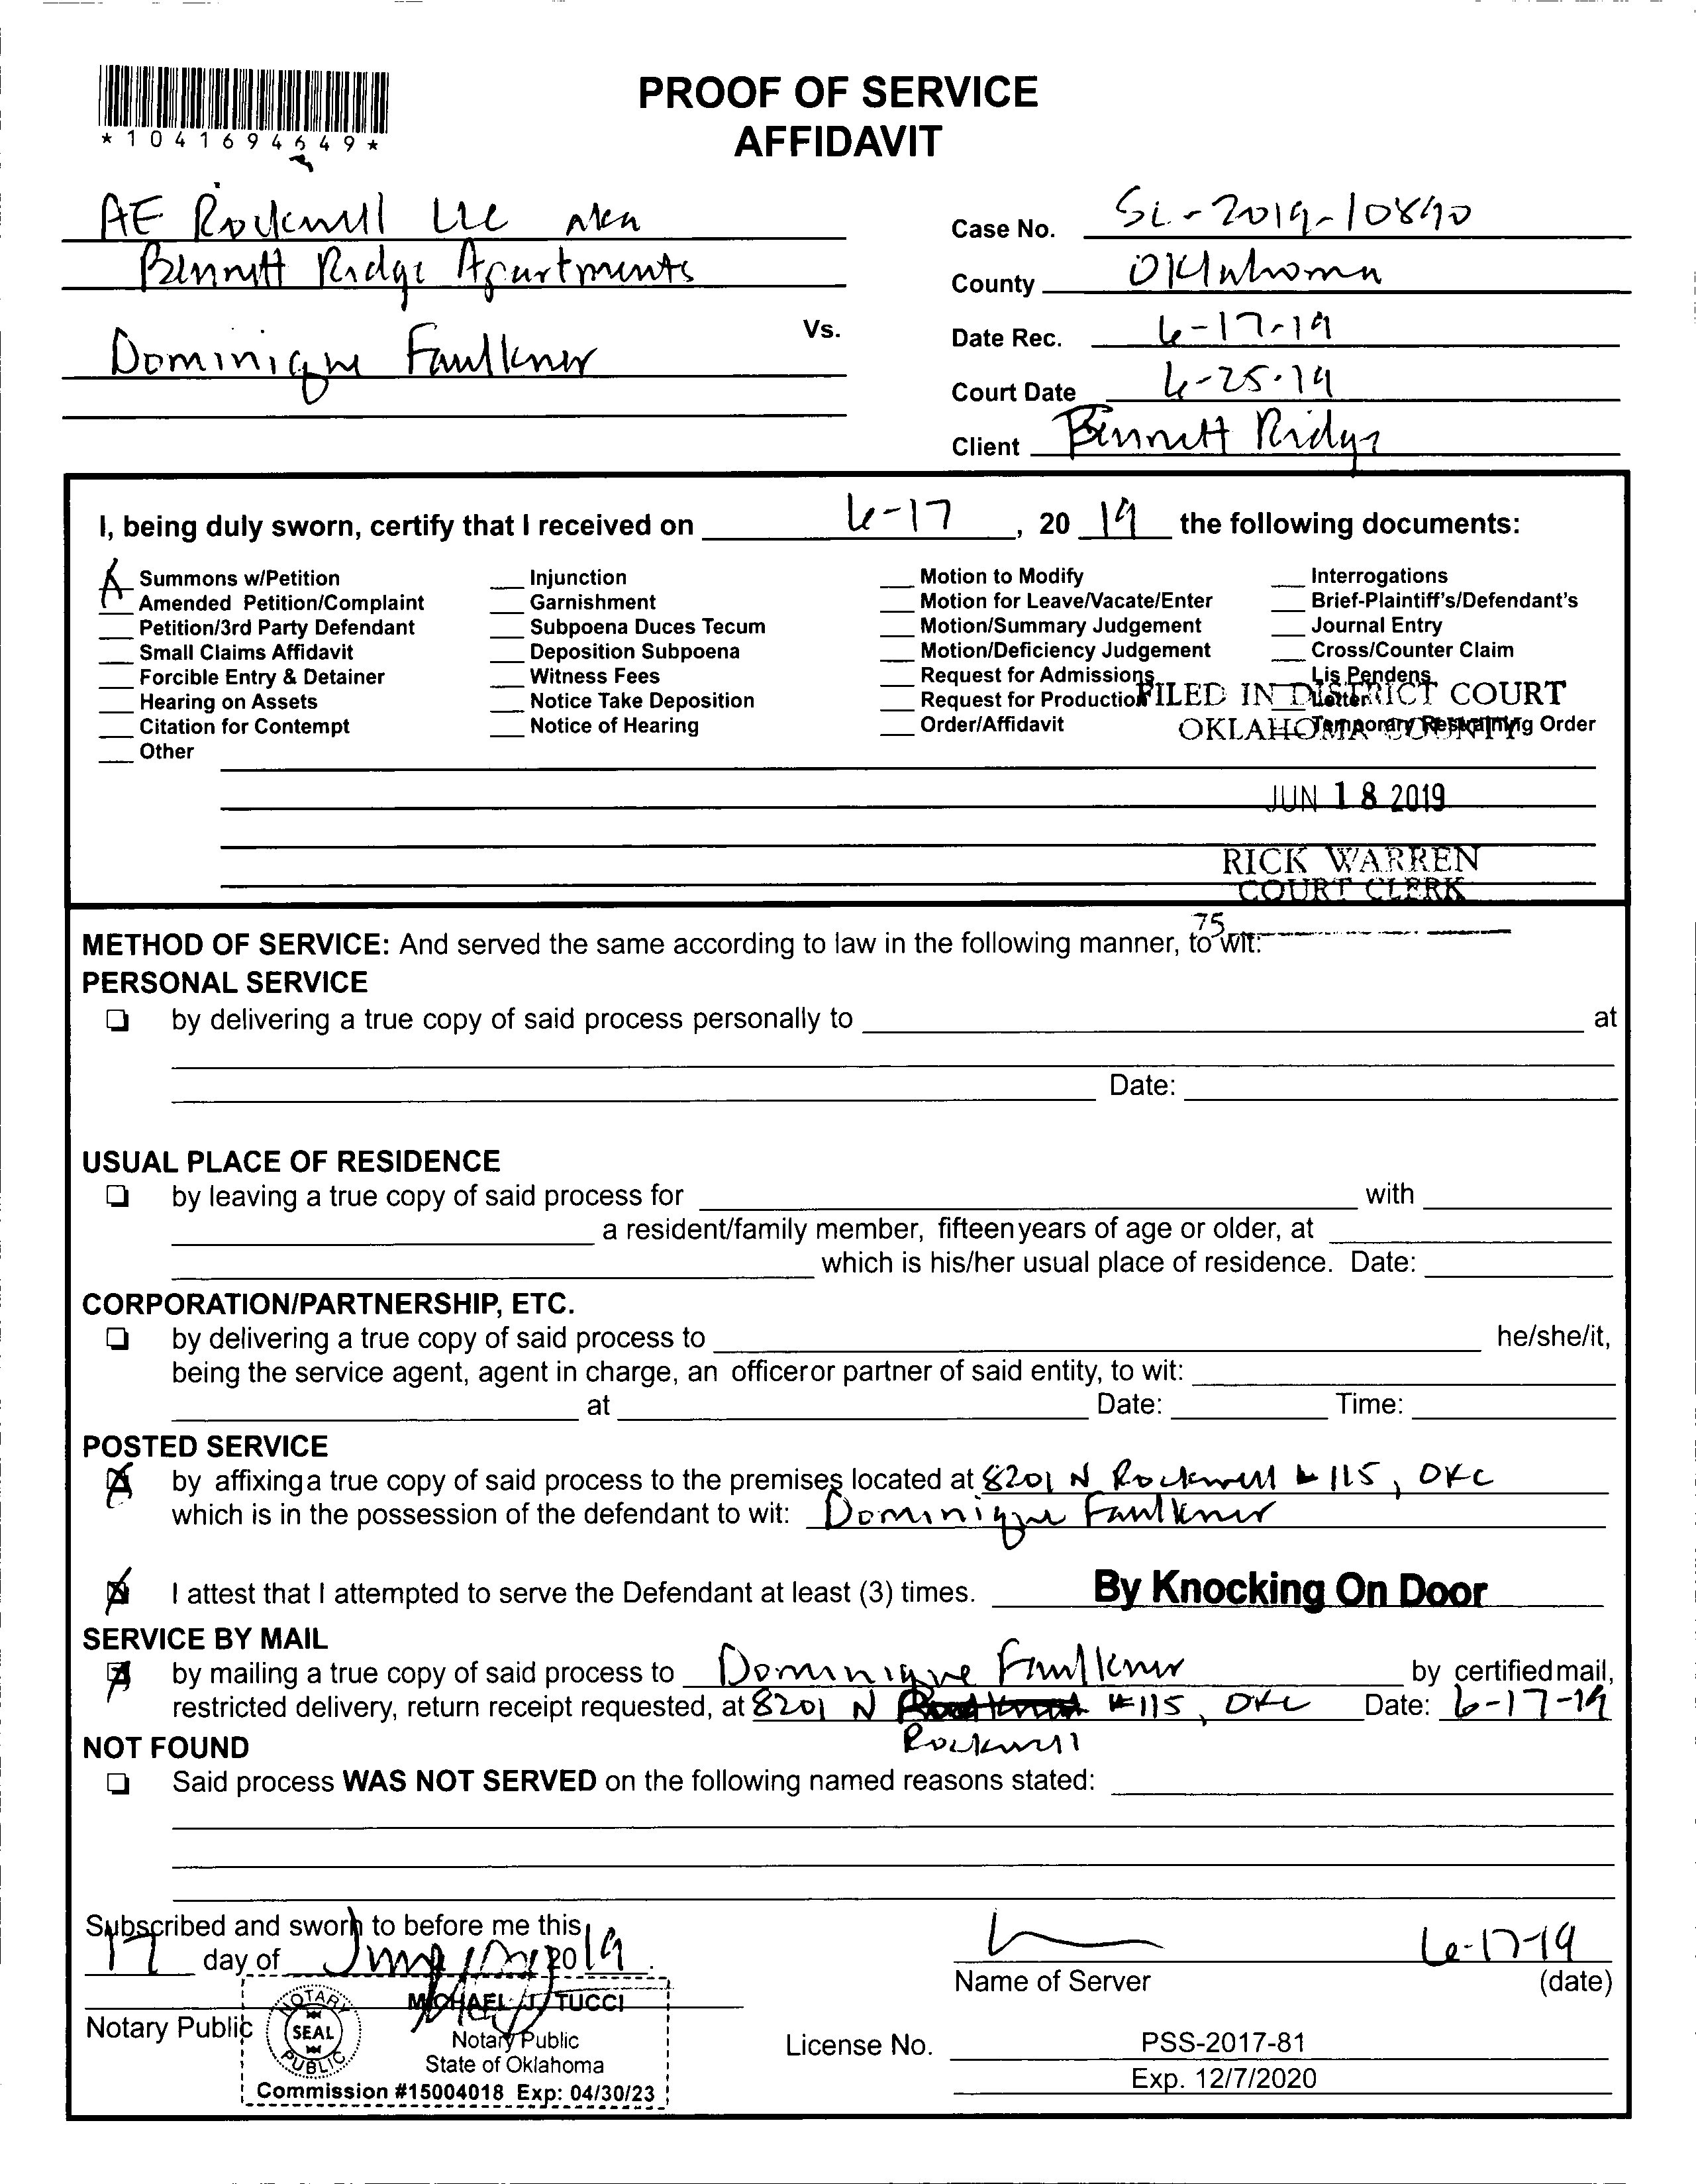 *1041694649*
PROOF OF SERVICE
AFFIDAVIT
AE Rockwell LLC aka
Bennett Ridge Apartments
Vs.
Dominique Faulkner
Case No. SC-2019-10890
County Oklahoma
Date Rec. 6-17-19
Court Date 6-25-19
Client Bennett Ridge
I, being duly sworn, certify that I received on 6-17, 20 19 the following documents:
Summons w/Petition
Amended Petition/Complaint
Petition/3rd Party Defendant
Small Claims Affidavit
Forcible Entry & Detainer
Hearing on Assets
Citation for Contempt
Other
Injunction
Garnishment
Subpoena Duces Tecum
Deposition Subpoena
Witness Fees
Notice Take Deposition
Notice of Hearing
Motion to Modify
Motion for Leave/Vacate/Enter
Motion/Summary Judgement
Motion/Deficiency Judgement
Request for Admissions
Request for Production
Order/Affidavit
Interrogations
Brief-Plaintiff's/Defendant's
Journal Entry
Cross/Counter Claim
Lis Pendens
Letter
Temporary Restraining Order
FILED IN DISTRICT COURT
OKLAHOMA COUNTY
JUN 18 2019
RICK WARREN
COURT CLERK
75
METHOD OF SERVICE: And served the same according to law in the following manner, to wit:
PERSONAL SERVICE
by delivering a true copy of said process personally to at
Date:
USUAL PLACE OF RESIDENCE
by leaving a true copy of said process for with
a resident/family member, fifteen years of age or older, at
which is his/her usual place of residence. Date:
CORPORATION/PARTNERSHIP, ETC.
by delivering a true copy of said process to he/she/it,
being the service agent, agent in charge, an officer or partner of said entity, to wit:
at Date: Time:
POSTED SERVICE
by affixing a true copy of said process to the premises located at 8201 N Rockwell # 115, OKC
which is in the possession of the defendant to wit: Dominique Faulkner
I attest that I attempted to serve the Defendant at least (3) times. By Knocking On Door
SERVICE BY MAIL
by mailing a true copy of said process to Dominique Faulkner by certified mail,
restricted delivery, return receipt requested, at 8201 N #115, OKC Date: 6-17-19
Rockwell
NOT FOUND
Said process WAS NOT SERVED on the following named reasons stated:
Subscribed and sworn to before me this
17 day of June 2019.
Notary Public
NOTARY
SEAL
PUBLIC
MICHAEL J. TUCCI
Notary Public
State of Oklahoma
Commission #15004018 Exp: 04/30/23
6-17-19
Name of Server (date)
License No. PSS-2017-81
Exp. 12/7/2020